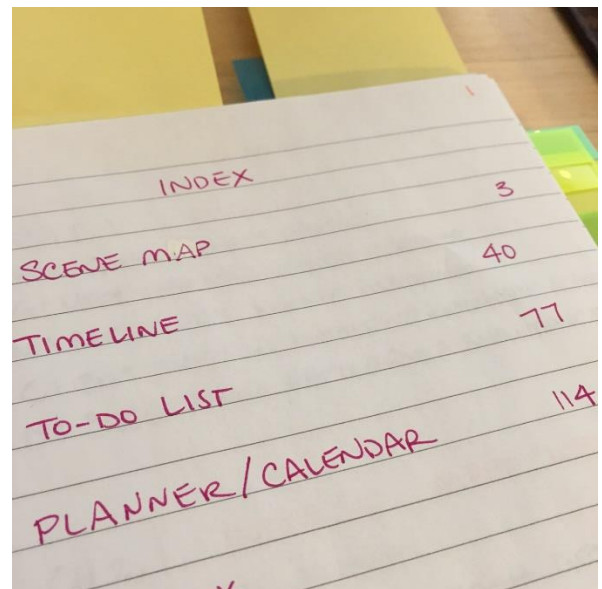 1
INDEX
SCENE MAP 3
TIMELINE 40
TO-DO LIST 77
PLANNER/CALENDAR 114